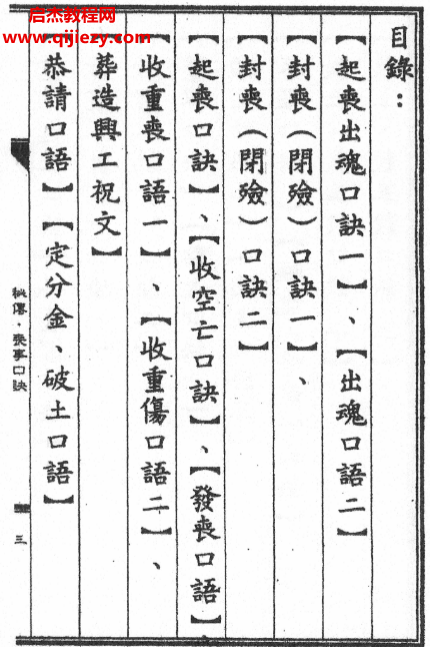 启杰教程网
www.qijiezy.com
目錄：
【起喪出魂口訣一】、【出魂口語二】
【封喪（閉殮）口訣一】、
【封喪（閉殮）口訣二】
【起喪口訣】、【收空亡口訣】、【發喪口語】、
【收重喪口語一】、【收重傷口語二】、
葬造興工祝文】
【恭請口語】【定分金、破土口語】
秘傳·喪事口訣
三